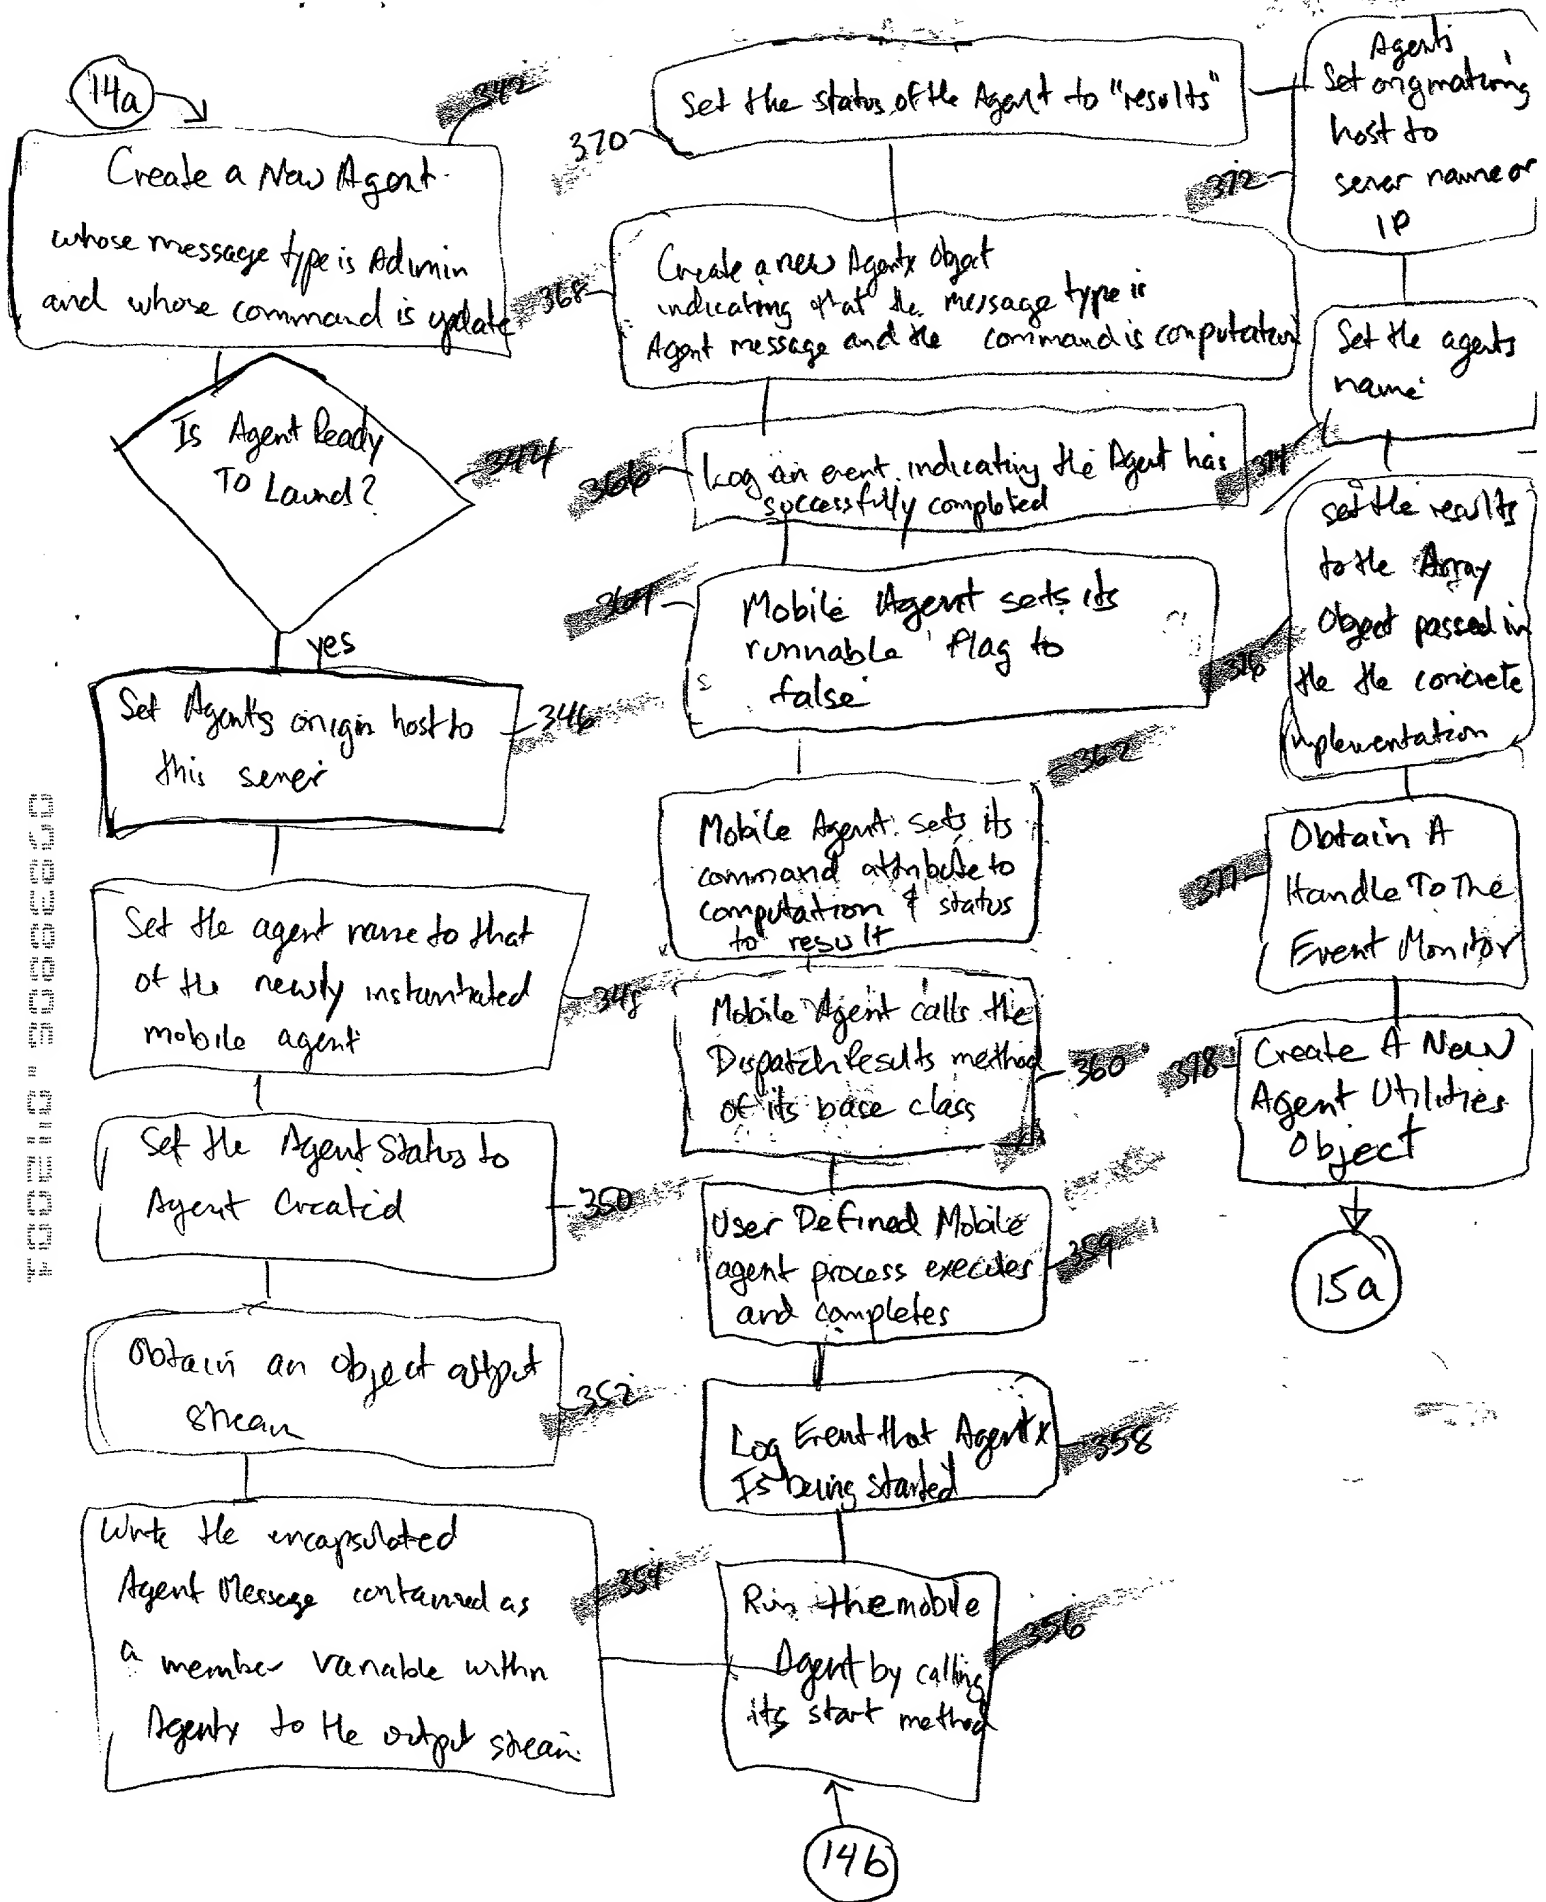 14a
342
Create a New Agent
whose message type is Admin
and whose command is update
Is Agent Ready
To Launch?
344
yes
Set Agents origin host to
this server
346
Set the agent name to that
of the newly instantiated
mobile agent
348
Set the Agent Status to
Agent Created
350
Obtain an object output
stream
352
Write the encapsulated
Agent Message contained as
a member variable within
Agentx to the output stream
354
Set the status of the Agent to "results"
370
Create a new Agentx Object
indicating that the message type is
Agent message and the command is computation
368
Log an event indicating the Agent has
successfully completed
366
Mobile Agent sets its
runnable flag to
false
364
362
Mobile Agent sets its
command attribute to
computation & status
to result
Mobile Agent calls the
Dispatch Results method
of its base class
360
User Defined Mobile
agent process executes
and completes
359
Log Event that Agentx
Is being started
358
Run the mobile
Agent by calling
its start method
356
14b
Agents
Set originating
host to
server name or
IP
372
Set the agents
name
374
set the results
to the Array
Object passed in
the the concrete
implementation
376
Obtain A
Handle To The
Event Monitor
377
Create A New
Agent Utilities
Object
378
15a